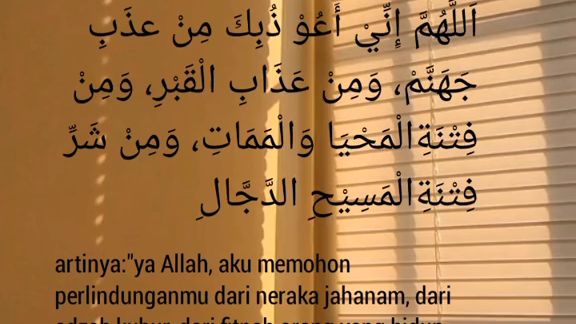 اَللَّهُمَّ إِنِّيْ أَعُوْ ذُبِكَ مِنْ عذَبِ
جَهَنَّمْ، وَمِنْ عَذَابِ الْقَبْرِ، وَمِنْ
فِتْنَةِ الْمَحْيَا وَالْمَمَاتِ، وَمِنْ شَرِّ
فِتْنَةِ الْمَسِيْحِ الدَّجَّالِ
artinya:"ya Allah, aku memohon
perlindunganmu dari neraka jahanam, dari